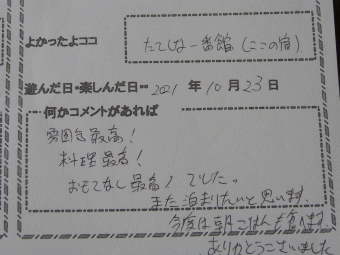 よかったよココ
たてしな一番館(ここの宿)
遊んだ日・楽しんだ日… 2021 年 10 月 23 日
何かコメントがあれば
雰囲気最高!
料理最高!
おもてなし最高! でした。
また泊まりたいと思います
今度は朝ごはんも食べます
ありがとうございました